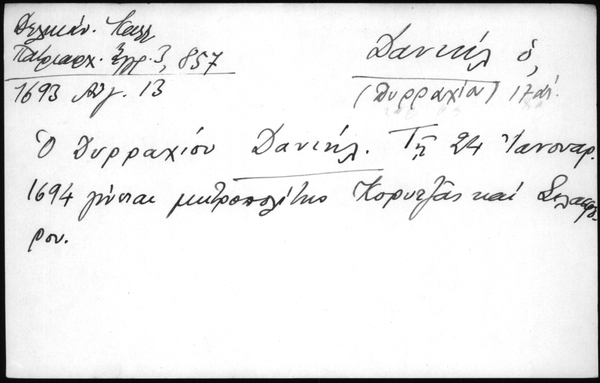 Δελικάν. Καλλ
Πατριαρχ. Ἔγγρ. 3, 857
1693 Αὐγ. 13
Δανιήλ ὁ,
(Δυρραχίου) 17 αἰ.
Ὁ Δυρραχίου Δανιήλ. Τῇ 24 Ἰανουαρ.
1694 γίνεται μητροπολίτης Κορυτζᾶς καί Σελασφό-
ρου.